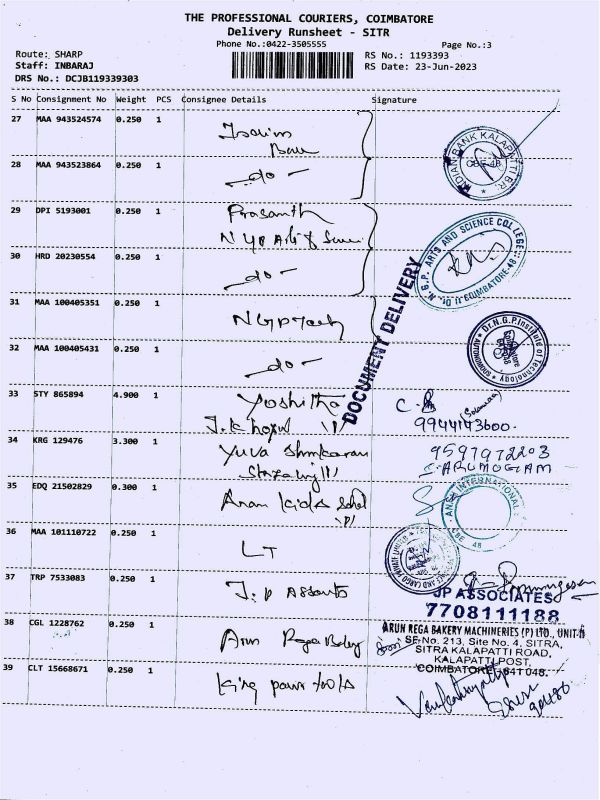 THE PROFESSIONAL COURIERS, COIMBATORE
Delivery Runsheet - SITR
Phone No.:0422-3505555 Page No.:3
Route: SHARP RS No.: 1193393
Staff: INBARAJ RS Date: 23-Jun-2023
DRS No.: DCJB119339303
S No Consignment No Weight PCS Consignee Details Signature
27 MAA 943524574 0.250 1
INDIAN BANK KALAPATTI BR.
CBE-48
28 MAA 943523864 0.250 1 - do -
29 DPI 5193001 0.250 1 Prasanth
N.G.P. ARTS AND SCIENCE COLLEGE
COIMBATORE-48
30 HRD 20230554 0.250 1 - do -
DOCUMENT DELIVERY
31 MAA 100405351 0.250 1 NGP Tech
Dr.N.G.P.Institute of Technology
32 MAA 100405431 0.250 1 - do -
33 STY 865894 4.900 1 Yoshitha
9944143600.
34 KRG 129476 3.300 1 Yuva
9597972203
C. ARUMUGAM
35 EDQ 21502829 0.300 1 Kids
INTERNATIONAL
CBE 48
36 MAA 101110722 0.250 1 LT
37 TRP 7533083 0.250 1 J. P
JP ASSOCIATES
7708111188
38 CGL 1228762 0.250 1 Arun Rega
ARUN REGA BAKERY MACHINERIES (P) LTD., UNIT-II
SF.No. 213, Site No. 4, SITRA,
SITRA KALAPATTI ROAD,
KALAPATTI POST,
COIMBATORE - 641 048.
39 CLT 15668671 0.250 1 King power tools